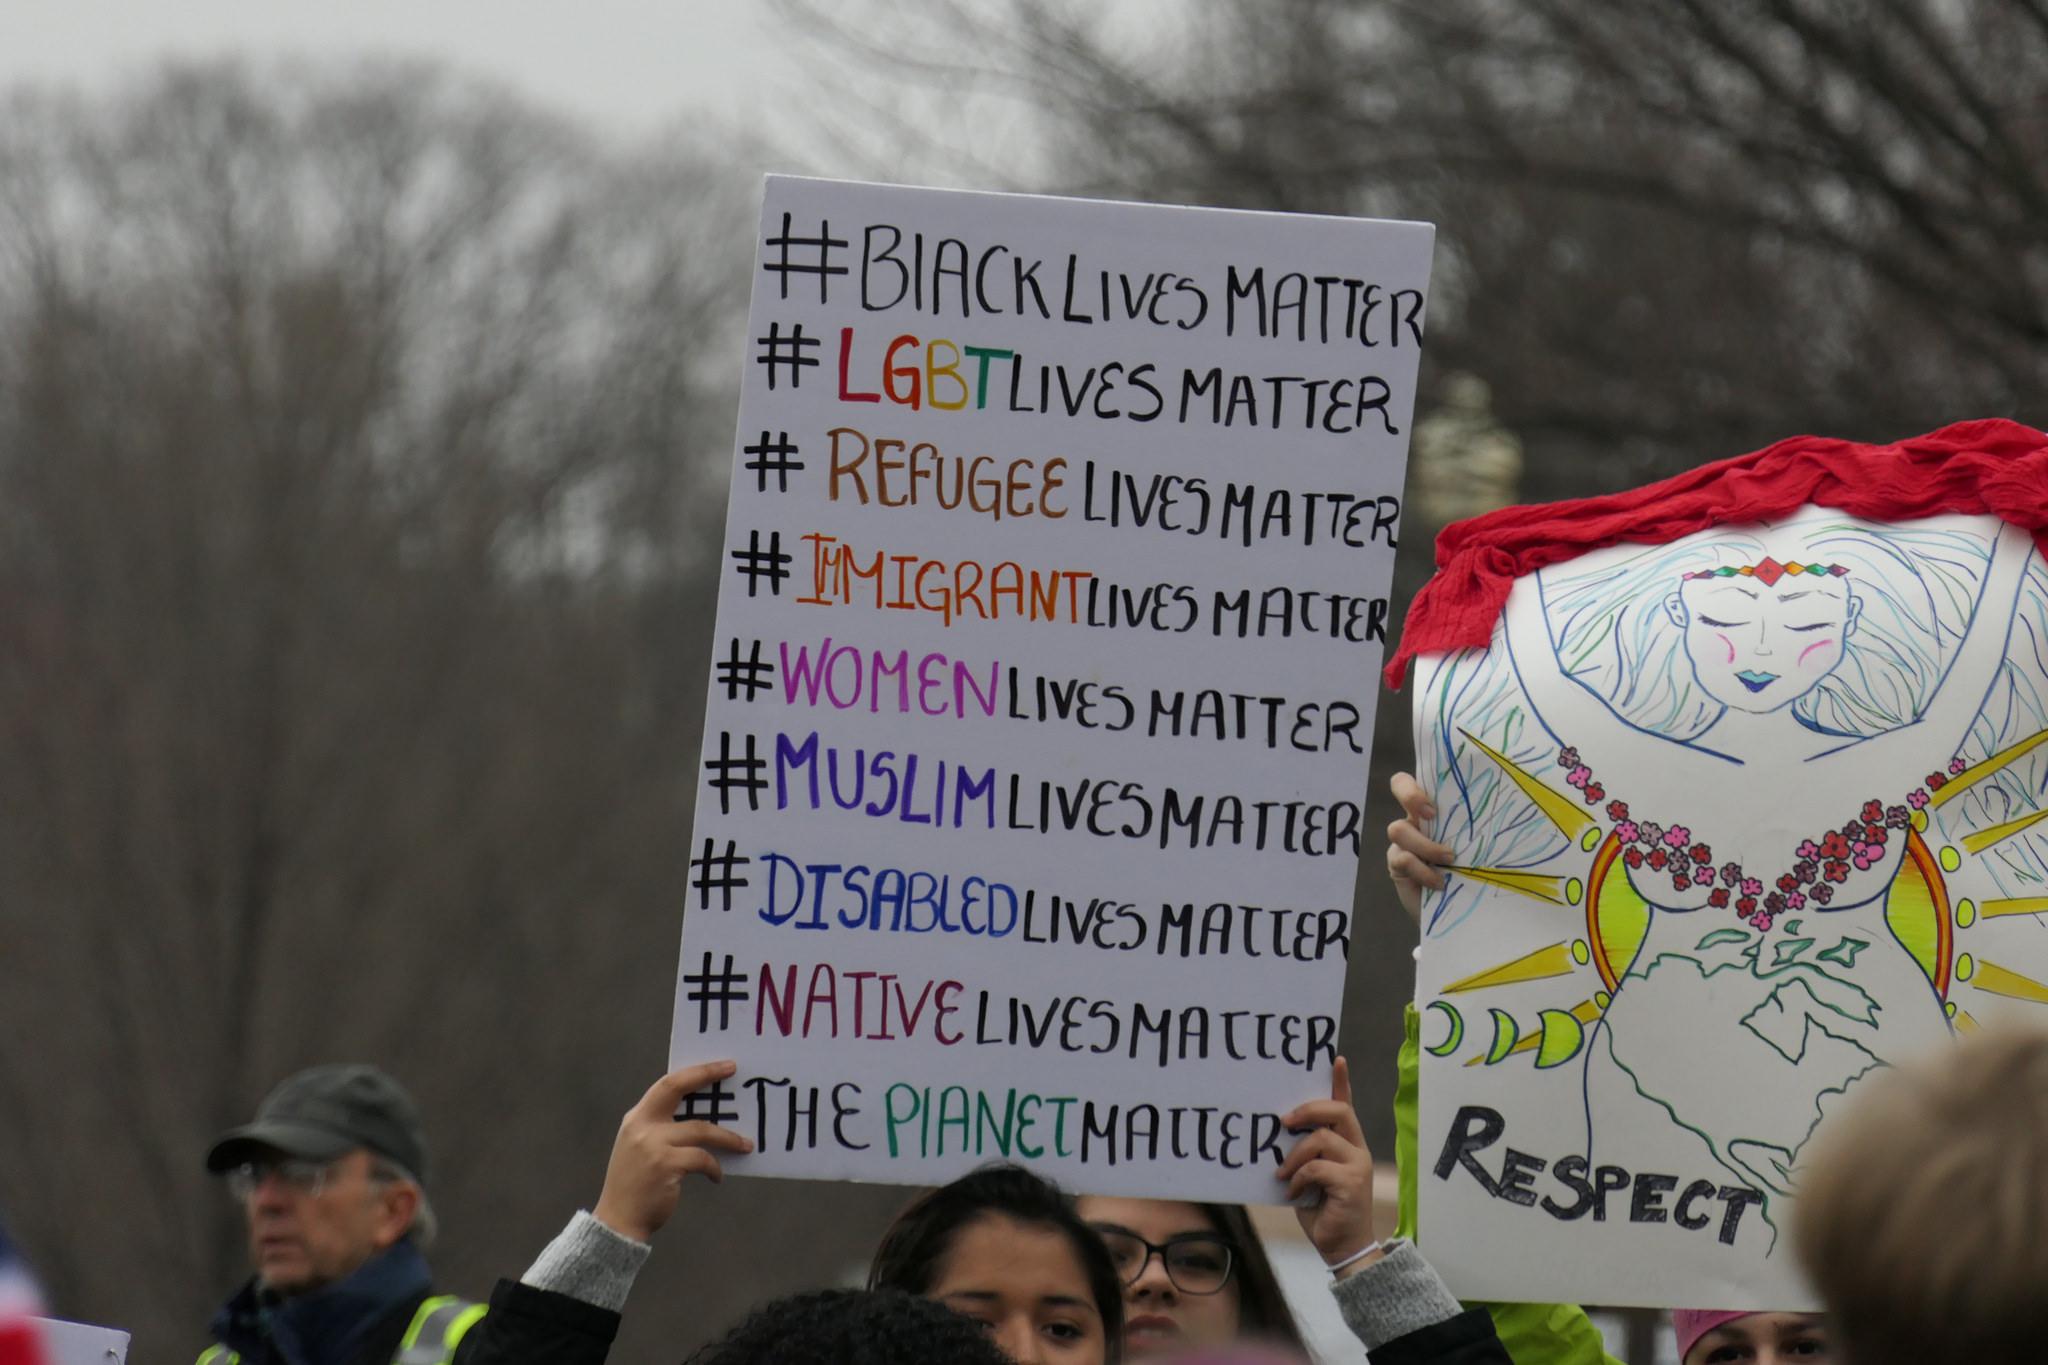 #BLACK LIVES MATTER
#LGBT LIVES MATTER
# REFUGEE LIVES MATTER
#IMMIGRANT LIVES MATTER
#WOMEN LIVES MATTER
#MUSLIM LIVES MATTER
#DISABLED LIVES MATTER
#NATIVE LIVES MATTER
#THE PLANET MATTER
RESPECT